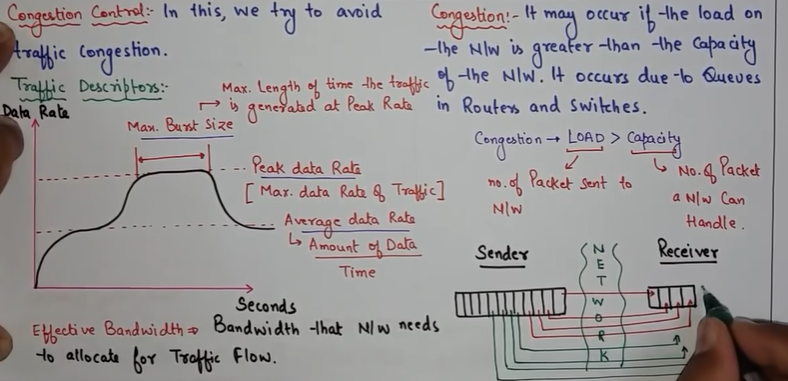 Congestion Control:- In this, we try to avoid
traffic congestion.
Traffic Descriptors:-
Max. Length of time the traffic
is generated at Peak Rate
Data Rate
Max. Burst Size
Peak data Rate
[Max. data Rate of Traffic]
Average data Rate
Amount of Data
Time
Seconds
Effective Bandwidth ⇒ Bandwidth that N/W needs
to allocate for Traffic Flow.
Congestion:- It may occur if the load on
the N/W is greater than the Capacity
of the N/W. It occurs due to Queues
in Routers and Switches.
Congestion → LOAD > Capacity
no. of Packet sent to
N/W
No. of Packet
a N/W Can
Handle.
Sender
NETWORK
Receiver